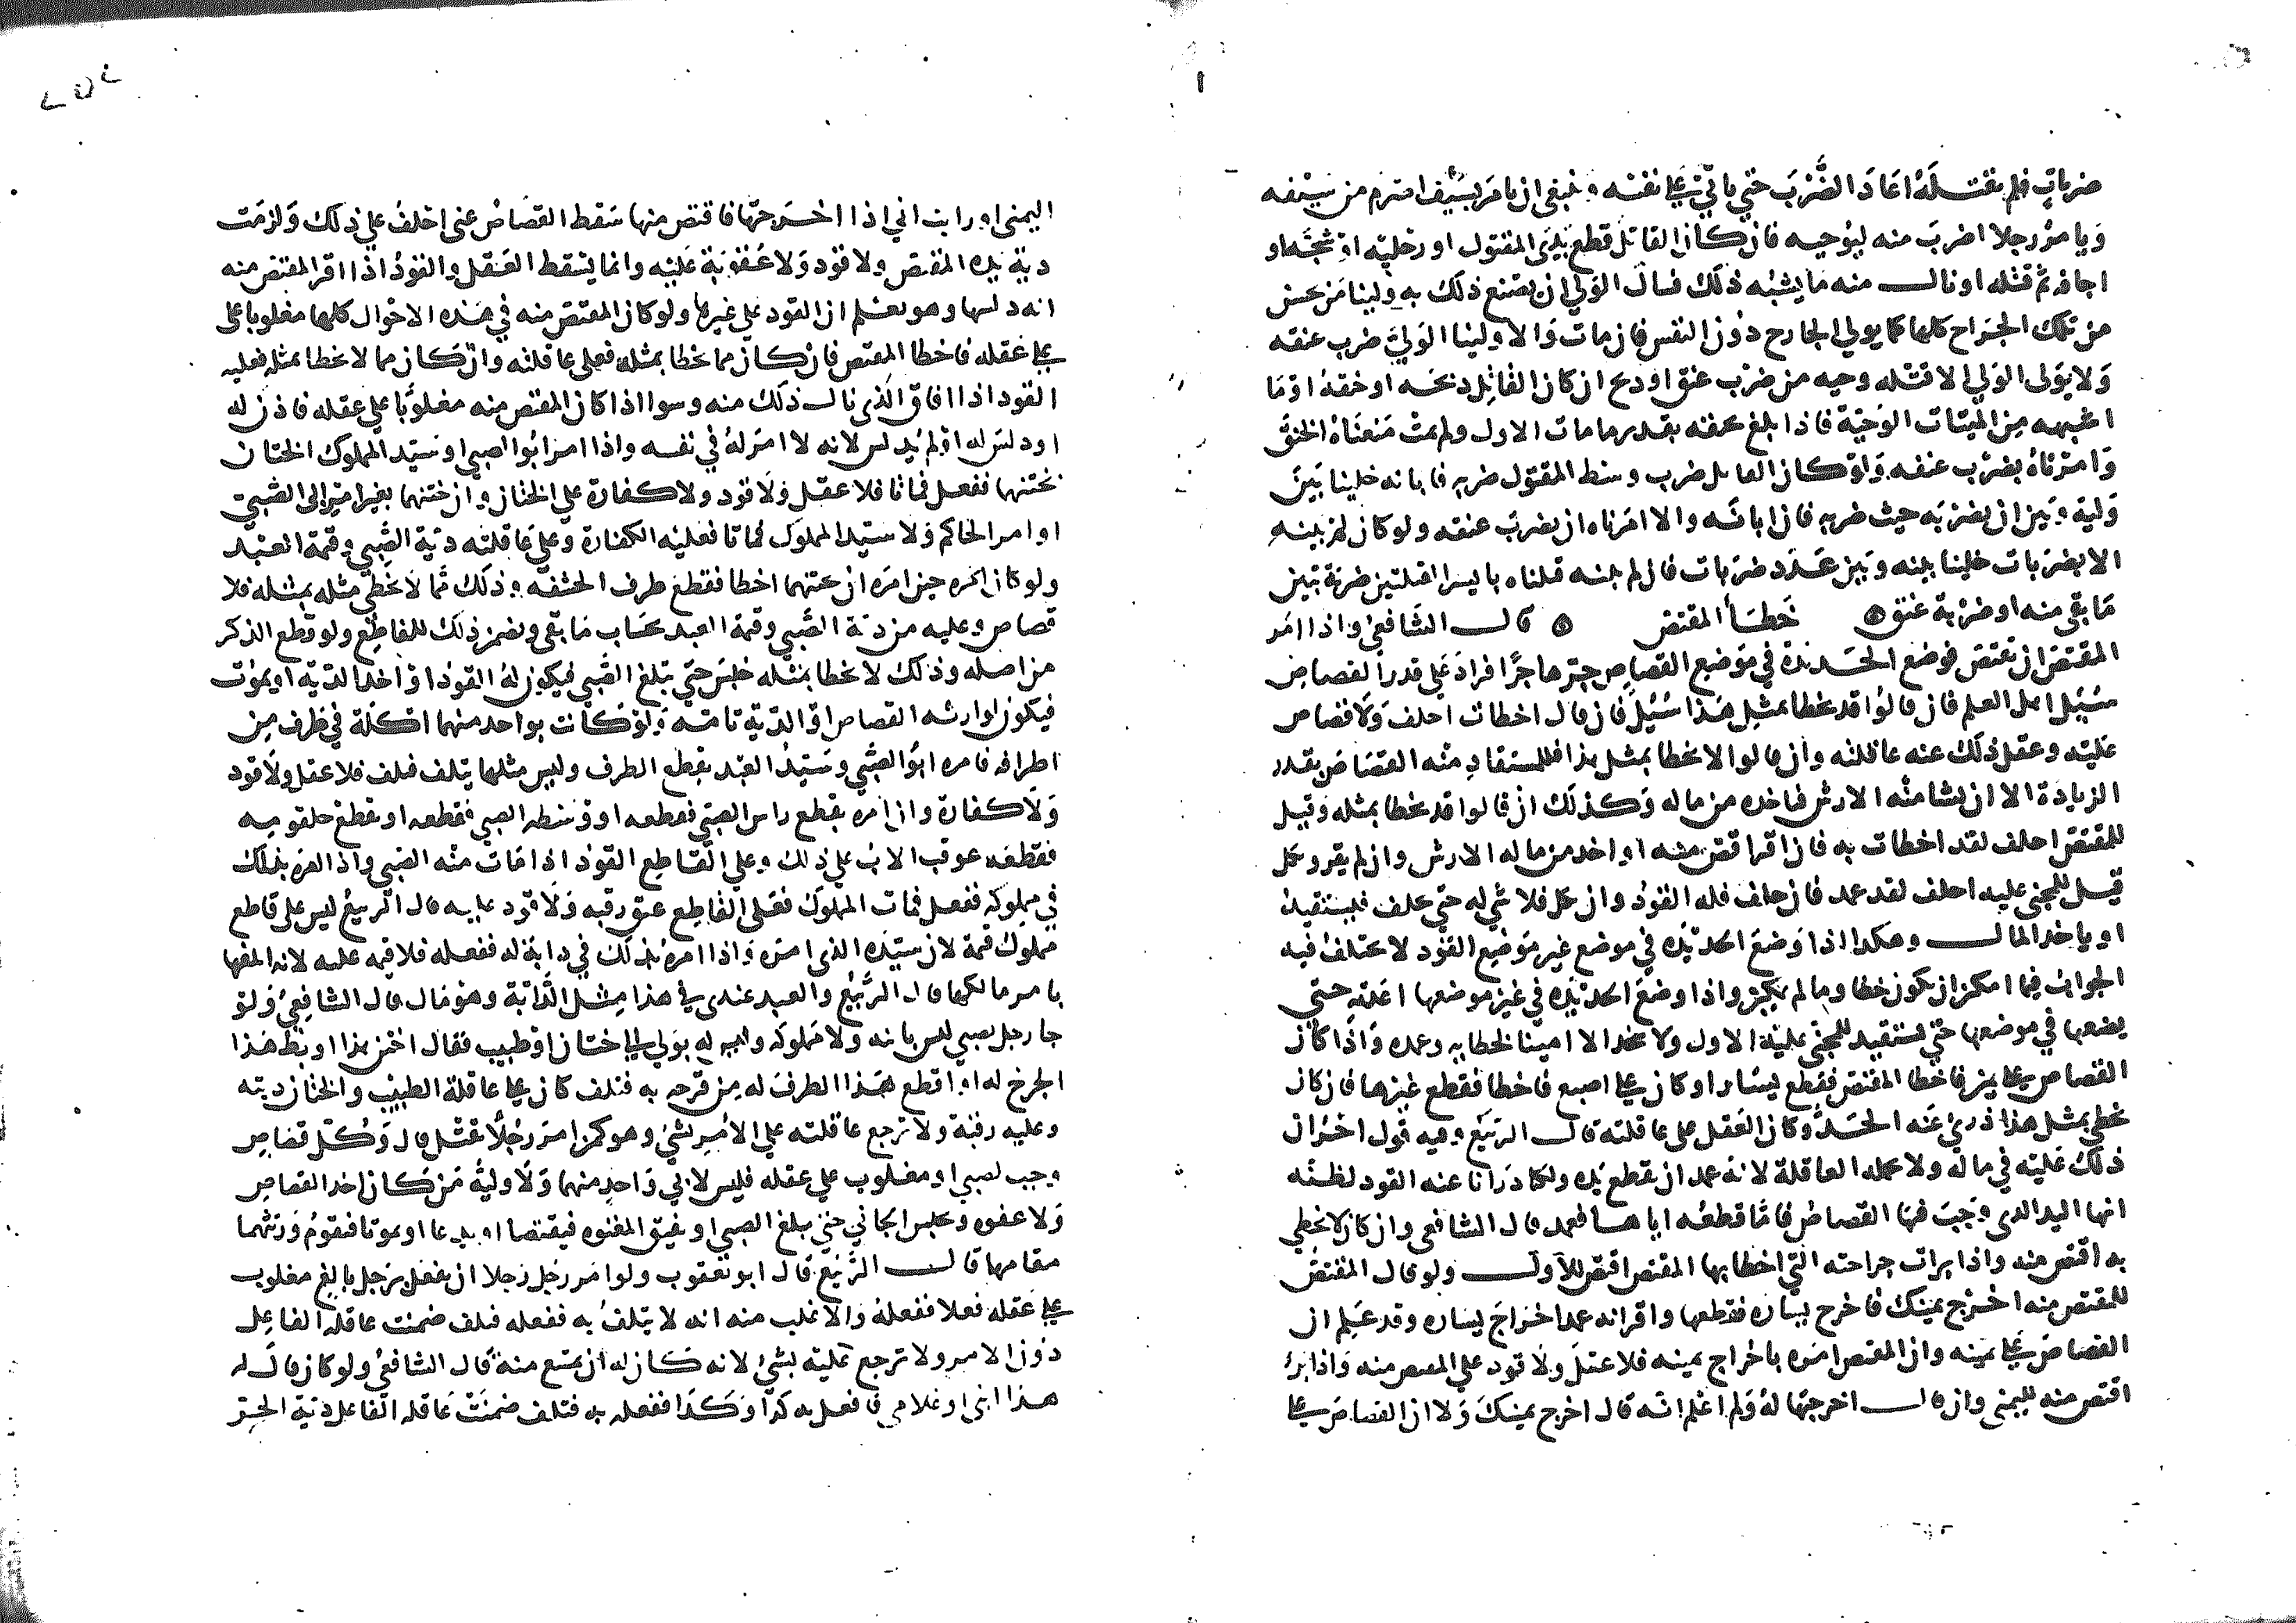 ضربات فلم يقتله اعاد الضرب حتى ياتي على نفسه وينبغي ان يامر بسيف اصرم من سيفه
ويامر رجلا اضرب منه ليوحيه فان كان القاتل قطع يدي المقتول او رجليه او شجه او
اجافه ثم قتله او نال منه ما يشبه ذلك فسال الولي ان يصنع ذلك به ولينا من يحسن
من تلك الجراح كلها كما يولي الجارح دون النفس فان مات والا ولينا الولي ضرب عنقه
ولا يولى الولي الا قتله وحيه من ضرب عنق او ذبح ان كان القاتل ذبحه او خنقه او ما
اشبهه من الميتات الوحية فاذا بلغ خنقه بقدر ما مات الاول ولم يمت منعناه الخنق
وامرناه بضرب عنقه ولو كان القاتل ضرب وسط المقتول ضربه فابانه خلينا بين
وليه وبين ان يضربه حيث ضربه فان ابانه والا امرناه ان يضرب عنقه ولو كان لم يبنه
الا بضربات خلينا بينه وبين عدد ضربات فان لم يبنه قلناه بايسر القتلتين ضربة تبين
ما بقى منه او ضربة عنق ۞ خطا المقتص ۞ قال الشافعي واذا امر
المقتص ان يقتص فوضع الحديدة في موضع القصاص ثم جرها جرا فزاد على قدر القصاص
سئيل اهل العلم فان قالوا قد يخطا بمثل هذا سئيل فان قال اخطات احلف ولا قصاص
عليه وعقل ذلك عنه عاقلته وان قالوا لا يخطا بمثل هذا فللمستقاد منه القصاص بقدر
الزيادة الا ان يشا منه الارش فياخده من ماله وكذلك ان قالوا قد يخطا بمثله وقيل
للمقتص احلف لقد اخطات به فان اقر اقتص منه او اخد من ماله الارش وان لم يقر ونكل
قيل للمجنى عليه احلف لقد عمد فان حلف فله القود وان نكل فلا شي له حتى يحلف فيستقيد
او ياخذ المال وهكدا اذا وضع الحديده في موضع غير موضع القود لا يختلف فيه
الجواب فيما امكن ان يكون خطا وما لم يمكن واذا وضع الحديده في غير موضعها اعدته حتى
يضعها في موضعها حتى يستقيد للمجنى عليه الاول ولا يتخذ الا امينا لخطايه وعمده واذا كان
القصاص على يمين فاخطا المقتص فقطع يسارا او كان على اصبع فاخطا فقطع غيرها فان كان
يخطي بمثل هذا دري عنه الحد وكان العقل على عاقلته قال الربيع وفيه قول اخر ان
ذلك عليه في ماله ولا تحمله العاقلة لانه عمد ان يقطع يده ولكنا درانا عنه القود لظنه
انها اليد الدى وجب فيها القصاص فاما قطعه اياها فعمد قال الشافعي وان كان لا يخطي
به اقتص منه واذا برات جراحته التي اخطا بها المقتص اقتص للاول ولو قال المقتص
للمقتص منه اخرج يمينك فاخرج يساره فقطعها واقر انه عمد اخراج يساره وقد علم ان
القصاص على يمينه وان المقتص امره باخراج يمينه فلا عقل ولا قود على المقتص منه واذا برئ
اقتص منه لليمنى وان قال اخرجتها له ولم اعلم انه قال اخرج يمينك ولا ان القصاص على
اليمنى او رايت اني اذا اخرجتها فاقتص منها سقط القصاص عنى احلف على ذلك ولزمت
دية يده المقتص ولا قود ولا عقوبة عليه وانما يسقط العقل والقود اذا اقر المقتص منه
انه دلسها وهو يعلم ان القود على غيرها ولو كان المقتص منه في هذه الاحوال كلها مغلوبا على
على عقله فاخطا المقتص فان كان مما يخطا بمثله فعلى عاقلته وان كان مما لا يخطا بمثله فعليه
القود اذا افاق الذى نال ذلك منه وسوا اذا كان المقتص منه مغلوبا على عقله فاذن له
او دلس له او لم يدلس لانه لا امر له في نفسه واذا امر ابو الصبي او سيد المملوك الختان
بختنهما ففعل فماتا فلا عقل ولا قود ولا كفارة على الختان وان ختنهما بغير امر ابى الصبي
او امر الحاكم ولا سيد المملوك فماتا فعليه الكفارة وعلى عاقلته دية الصبي وقيمة العبد
ولو كان امره حين امره ان يختنهما اخطا فقطع طرف الحشفه وذلك مما لا يخطي مثله بمثله فلا
قصاص وعليه من دية الصبي وقيمة العبد بحساب ما بقى ويضمن ذلك للقاطع ولو قطع الذكر
من اصله وذلك لا يخطا بمثله حبس حتى يبلغ الصبي فيكون له القود او اخذ الدية او يموت
فيكون لوارثه القصاص او الدية تامه ولو كانت بواحد منهما اكلة في طرف من
اطرافه فامره ابو الصبي وسيد العبد بقطع الطرف وليس مثلها يتلف فتلف فلا عقل ولا قود
ولا كفارة وان امره بقطع راس الصبي فقطعه او وسطه الصبي فقطعه او بقطع حلقوميه
فقطعه عوقب الاب على ذلك وعلى القاطع القود اذا مات منه الصبي واذا امره بذلك
في مملوكه ففعل فمات المملوك فعلى القاطع عتق رقبه ولا قود عليه قال الربيع ليس على قاطع
مملوك قيمة لان سيده الذي امره واذا امره بذلك في دابة له ففعله فلا قيمه عليه لانه اتلفها
بامر مالكها قال الربيع والعبد عندي في هذا مثل الدابة وهو مال قال الشافعي ولو
جا رجل بصبي ليس بابنه ولا مملوكه وليس له بولي الى ختان او طبيب فقال اختن هذا او بط هذا
الجرح له او اقطع هذا الطرف له من قرحه به فتلف كان على عاقلة الطبيب والختان ديته
وعليه رقبة ولا ترجع عاقلته على الامر بشئ وهو كمن امر رجلا بقتل قال وكل قصاص
وجب لصبي او مغلوب على عقله فليس لابى واحد منهما ولا وليه من كان اخذ القصاص
ولا عفوه ويحبس الجاني حتى يبلغ الصبي او يفيق المعتوه فيقتصا او يدعا او يموتا فتقوم ورثتهما
مقامهما قال الربيع قال ابو يعقوب ولو امر رجل رجلا ان يفعل برجل بالغ مغلوب
على عقله فعلا ففعله والاغلب منه انه لا يتلف به ففعله فتلف ضمنت عاقله الفاعل
دون الامر ولا ترجع عليه بشئ لانه كان له ان يمتنع منه قال الشافعي ولو كان قال له
هذا ابني او غلامي فافعل به كذا وكذا ففعله به فتلف ضمنت عاقله الفاعل دية الحر